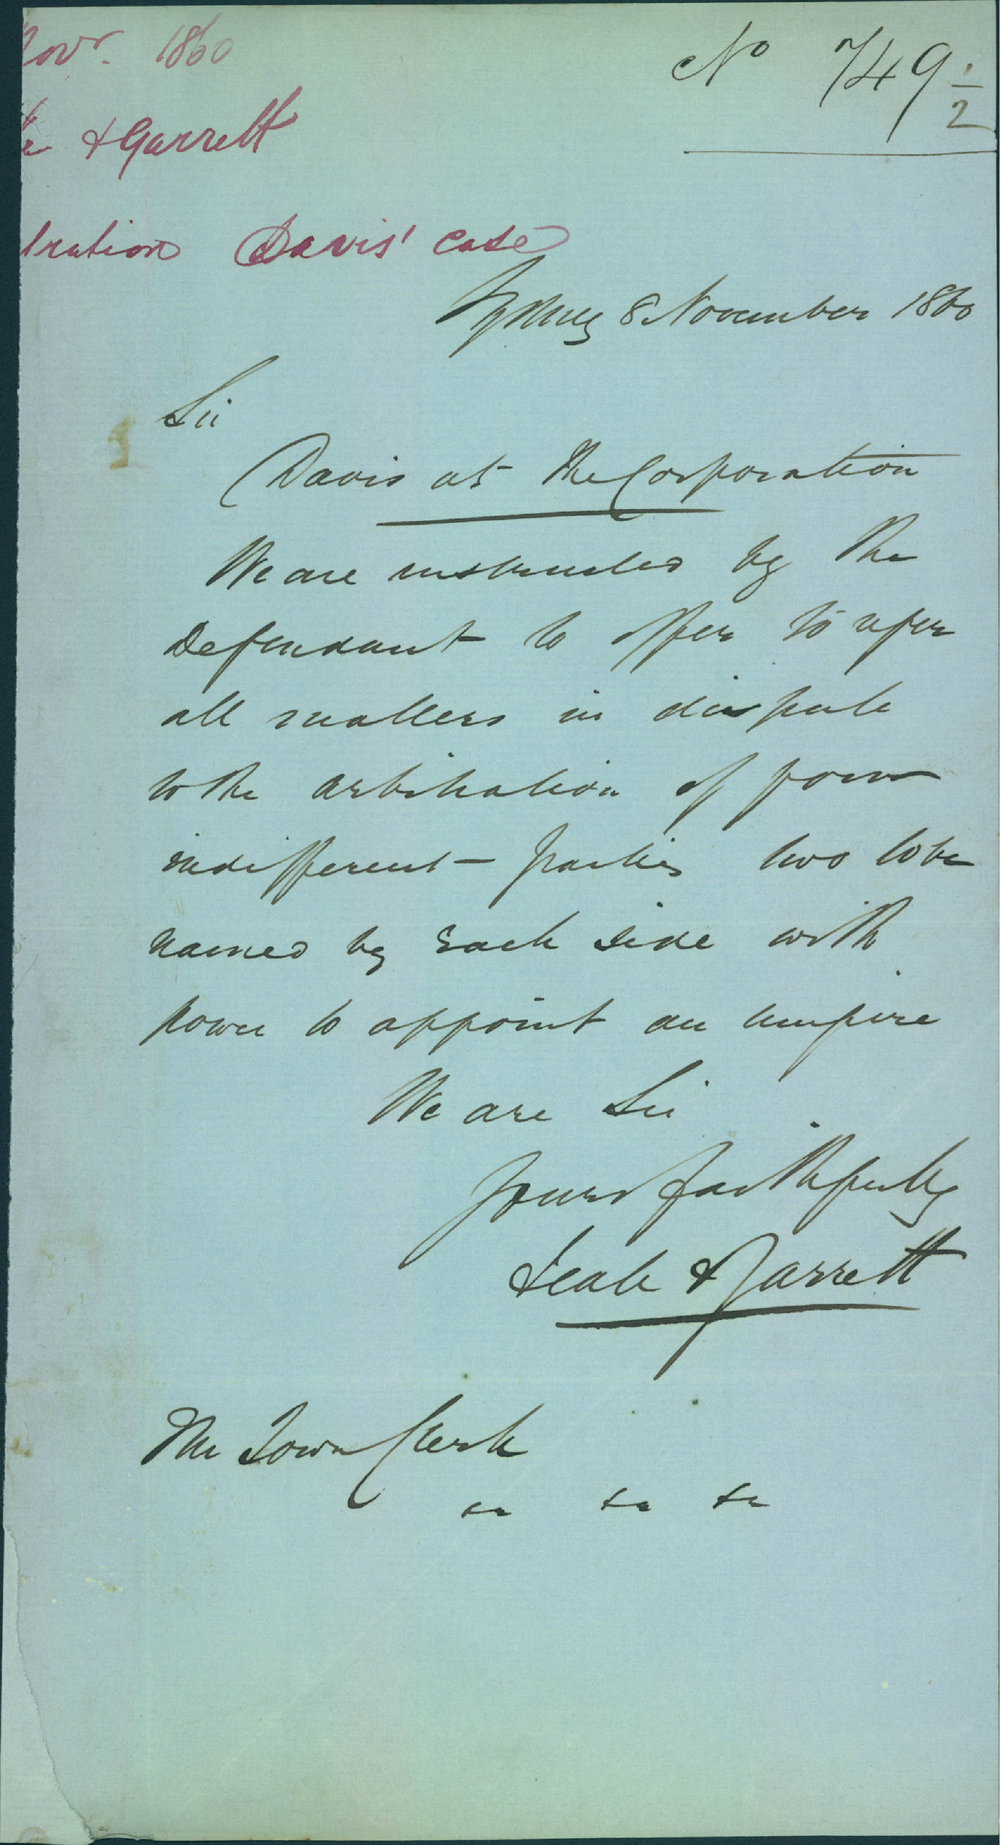 Novr. 1860
& Garrett
tration Davis' case
No 749 1/2
Sydney 8 November 1860
Sir
Davis ats The Corporation
We are instructed by the
Defendant to offer to refer
all matters in dispute
to the arbitration of four
indifferent parties two to be
named by each side with
power to appoint an umpire
We are Sir
Yours faithfully
& Garrett
The Town Clerk